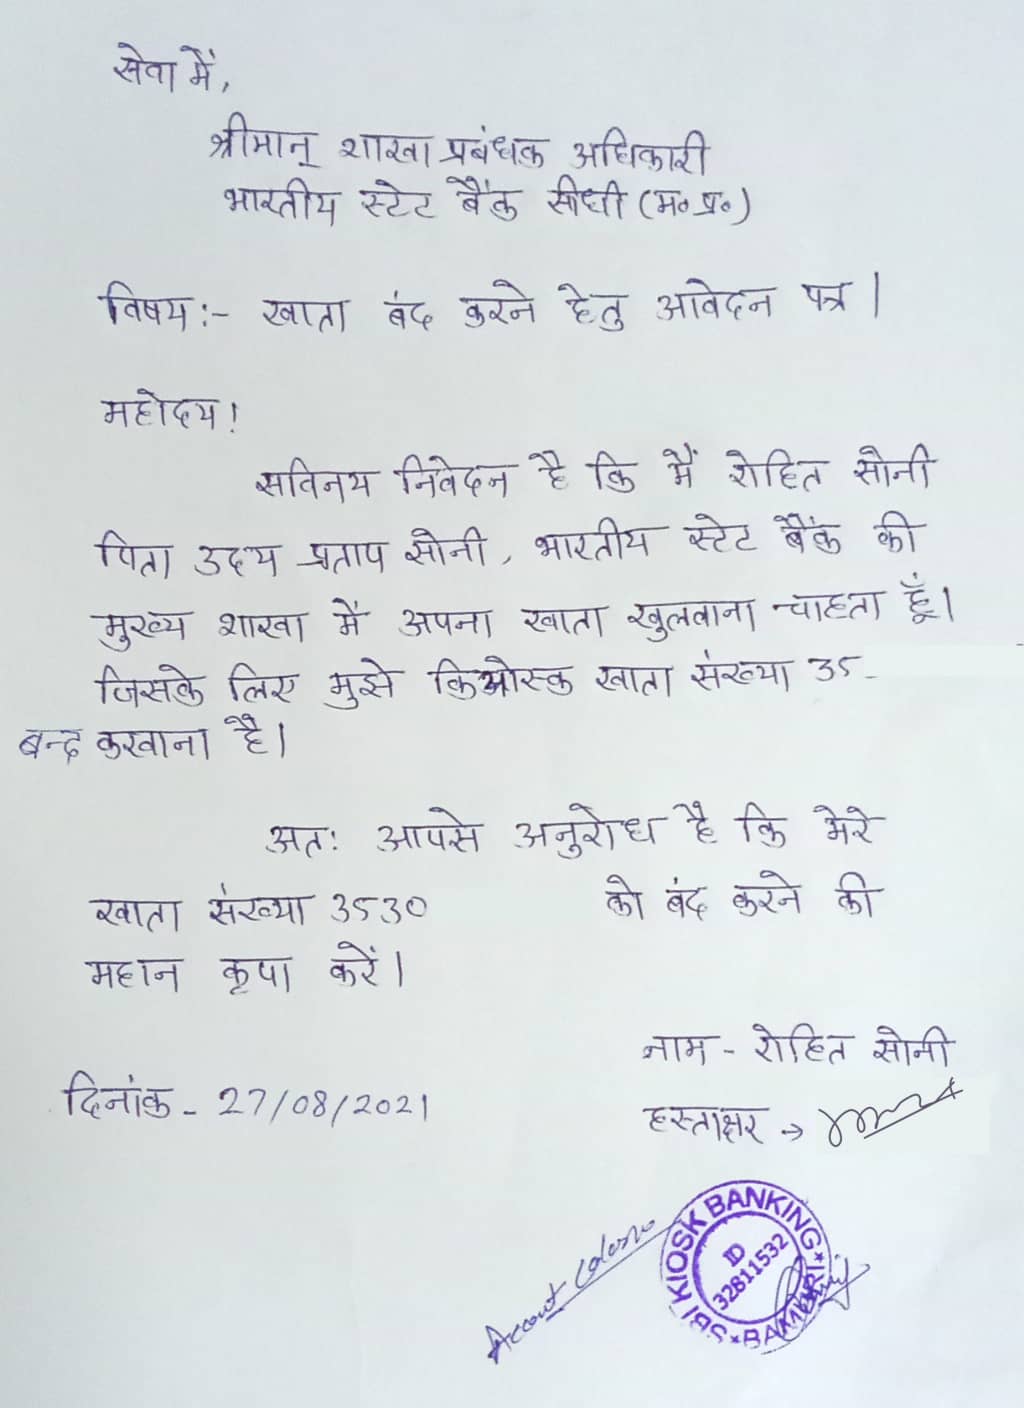 सेवा में,
श्रीमान् शाखा प्रबंधक अधिकारी
भारतीय स्टेट बैंक सीधी (म॰ प्र॰)
विषय:- खाता बंद करने हेतु आवेदन पत्र।
महोदय!
सविनय निवेदन है कि मैं रोहित सोनी
पिता उदय प्रताप सोनी, भारतीय स्टेट बैंक की
मुख्य शाखा में अपना खाता खुलवाना चाहता हूँ।
जिसके लिए मुझे किओस्क खाता संख्या 35-
बन्द करवाना है।
अतः आपसे अनुरोध है कि मेरे
खाता संख्या 3530 को बंद करने की
महान कृपा करें।
नाम - रोहित सोनी
दिनांक - 27/08/2021
हस्ताक्षर →
Account
SBI KIOSK BANKING
ID
32811532